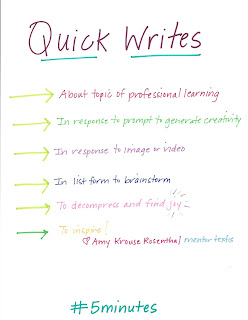 Quick Writes
About topic of professional learning
In response to prompt to generate creativity
In response to image or video
In list form to brainstorm
To decompress and find joy
To inspire!
Amy Krouse Rosenthal mentor texts
#5minutes